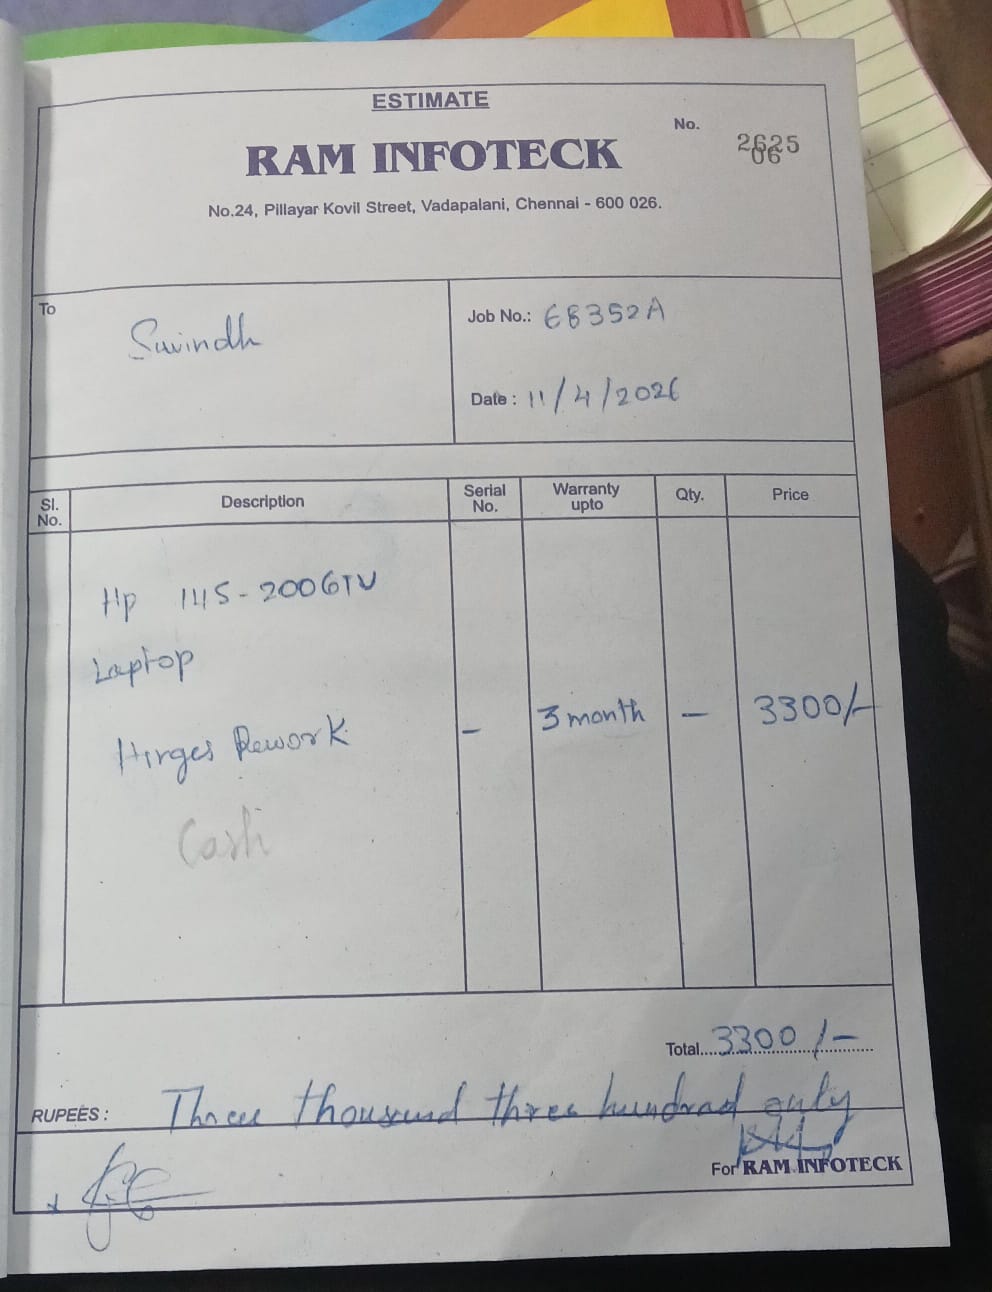 ESTIMATE
No.
RAM INFOTECK
No.24, Pillayar Kovil Street, Vadapalani, Chennai - 600 026.
To
Suvindh
Job No.: E8352A
Date : 11/4/2026
Sl. No. Description Serial No. Warranty upto Qty. Price
Hp 14S-2006TU
Laptop
Hinges Rework - 3 month - 3300/-
Cash
Total....3300/-
RUPEES : Three thousund three hundrad only
For RAM INFOTECK